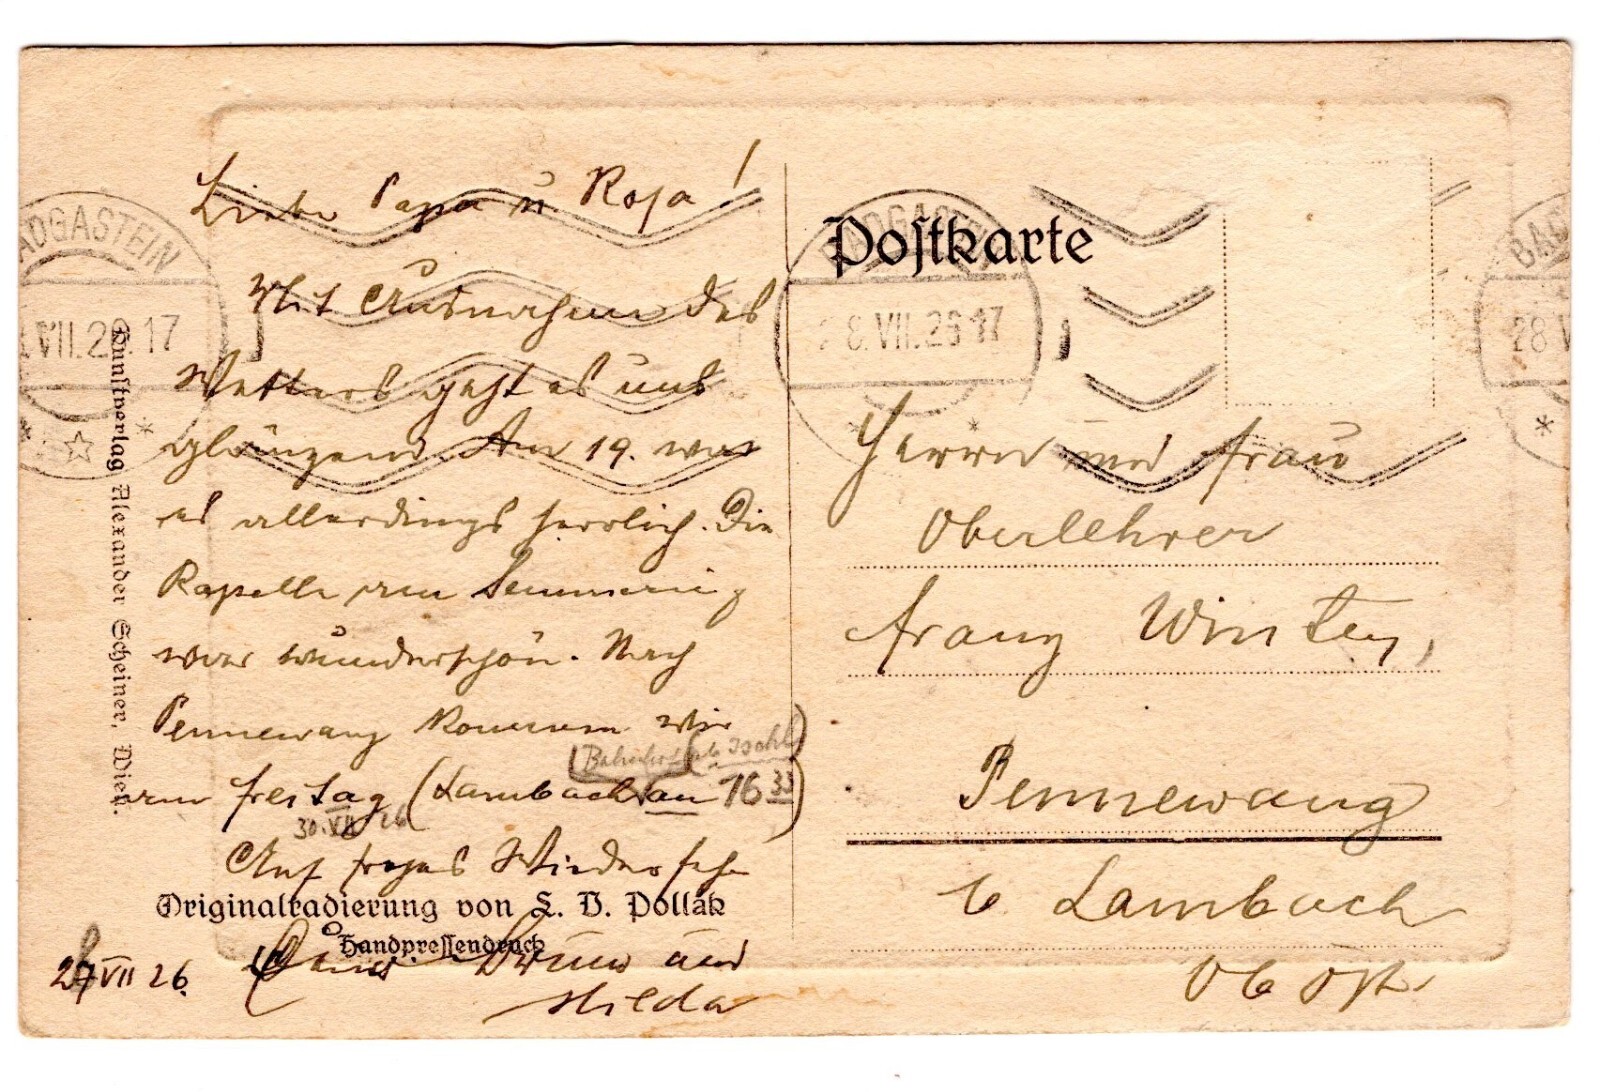 Liebe Papa u. Rosa!
Mit Ausnahme des
Wetters geht es uns
glänzend. Am 19. war
es allerdings herrlich. Die
Kapelle am Semmering
war wunderschön. Nach
Pennewang kommen wir
(Bahnhof Ischl)
am Freitag (Lambach an 16 33)
30. VII 26
Auf frohes Wiedersehen
Originalradierung von L. V. Pollák
Handpressendruck
Bruno und
Hilda
VII 26.
Kunstverlag Alexander Scheiner, Wien.
Postkarte
Herrn und Frau
Oberlehrer
Franz
Pennewang
b Lambach
Ob Öst.
BADGASTEIN
VII.26 17
BADGASTEIN
28.VII.26 17
1
BAD
28 V